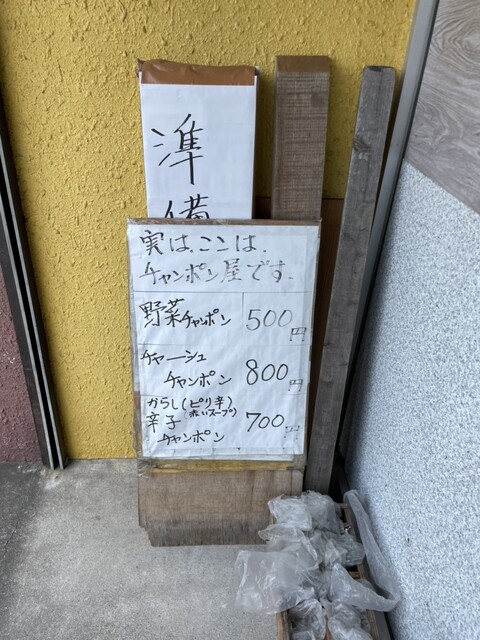 準備
実は、ここは、
チャンポン屋です.
野菜チャンポン 500円
チャーシュ
チャンポン 800円
からし(ピリ辛)
辛子(赤いスープ) 700円
チャンポン